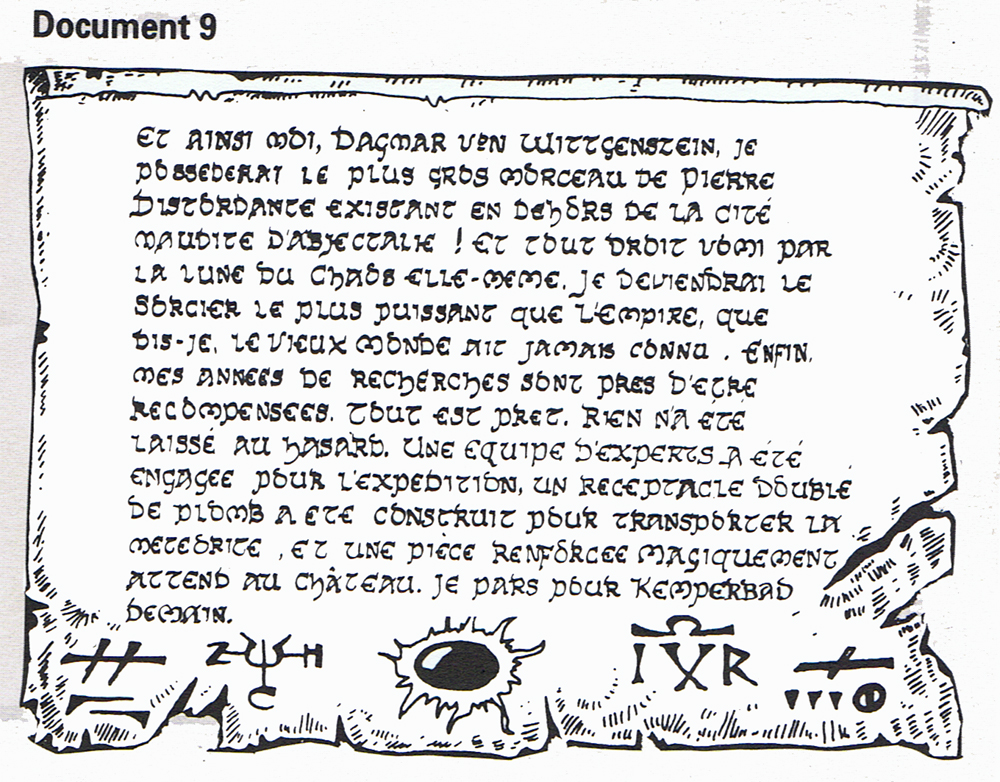 Document 9
Et ainsi moi, Dagmar von Wittgenstein, je
possederai le plus gros morceau de pierre
distordante existant en dehors de la cité
maudite d'abjectalie ! Et tout droit vomi par
la lune du chaos elle-meme. Je deviendrai le
sorcier le plus puissant que l'Empire, que
dis-je, le vieux monde ait jamais connu . Enfin,
mes annees de recherches sont pres d'etre
recompensees. Tout est pret. Rien n'a été
laissé au hasard. Une equipe d'experts a été
engagee pour l'expedition, un receptacle double
de plomb a ete construit pour transporter la
meteorite , et une pièce renforcee magiquement
attend au château. Je pars pour Kemperbad
demain.
I X R